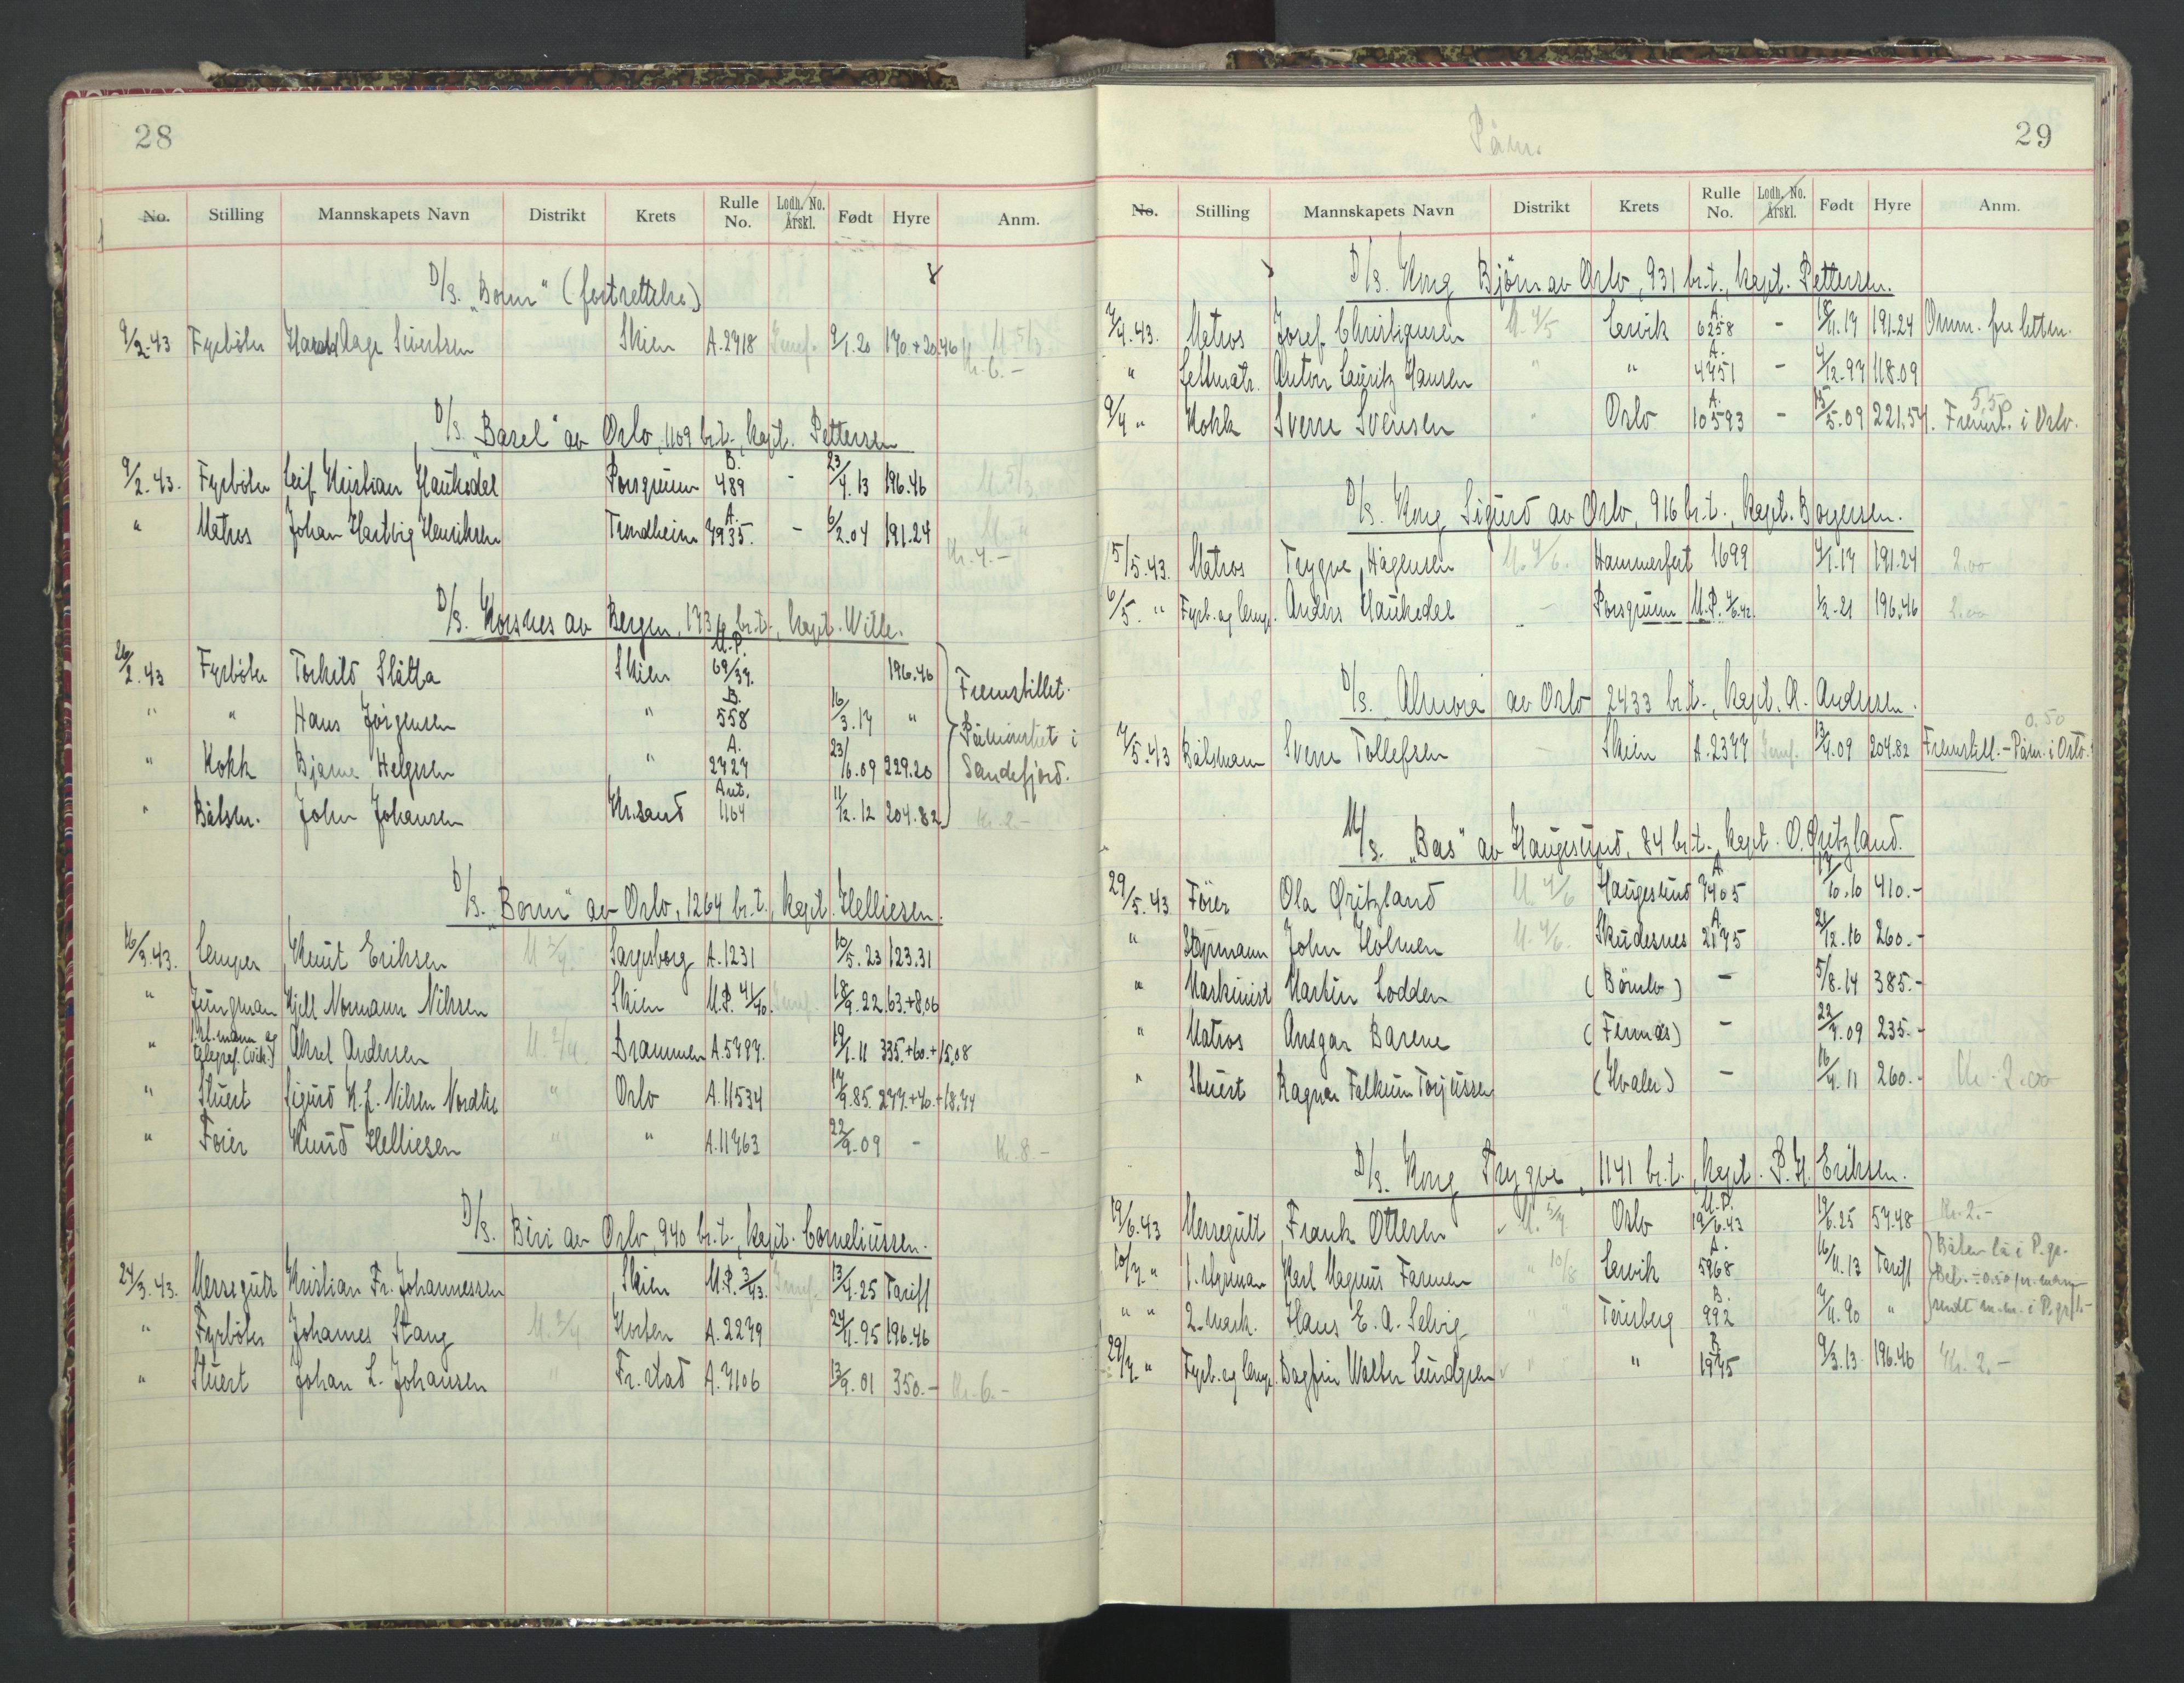 28
No. Stilling Mannskapets Navn Distrikt Krets Rulle No. Lodh. No. Årskl. Født Hyre Anm.
D/S. "Borm" (fortsettelse)
9/2.43 Fyrböter Harald Aage Sivertsen Skien A.2718 9/1.20 170.+20.46 U. 5/3
Kr. 6.-
D/S. "Basel" av Oslo, 1109 br.t., Kapt. Pettersen
9/2.43. Fyrböter Leif Kristian Haukedal Porsgrunn B. 489 - 23/4.13 196.46 U. 5/3
" Matros Johan Hartvig Henriksen Trondheim A. 7935. - 6/2.04 191.24
Kr. 4.-
D/S. Korsnes av Bergen, 1736 br.t., Kapt. Wille.
26/2.43 Fyrböter Torkild Slåtta Skien M.P. 69/37. 196.46 Fremstillet.
" " Hans Jörgensen " B. 558 16/3.17 " Påmönstret i
" Kokk Bjarne Helgesen " A. 2727 23/6.09 229.20 Sandefjord.
" Båtsm. John Johansen Kr.sand Ant. 1164 11/12.12 204.82 Kr. 2.-
D/S. "Borm" av Oslo, 1264 br.t., Kapt. Helliesen.
16/3.43. Lemper Knut Eriksen U. 2/4. Sarpsborg A.1231 10/5.23 123.31
" Jungman Kjell Normann Nilsen Skien M.P. 41/40. 18/9.22 63.+8.06
" telegraf. (vik.) Aksel Andersen U. 2/4. Drammen A.5797. 19/1.11 335.+60.+15.08
" Stuert Sigurd K. L. Nilsen Nordlie " Oslo A.11534 17/9.85. 277.+40.+18.74
" Förer Knud Helliesen " " A.11763 22/9.09 - Kr. 8.-
D/S. Biri av Oslo, 940 br.t., Kapt. Corneliussen.
24/3.43. Messegutt Kristian Fr. Johannessen Skien M.P. 3/43. 13/4.25 Tariff
" Fyrböter Johannes Stang U. 2/4. Horten A.2279 24/1.95 196.46
" Stuert Johan L. Johansen " Fr.stad A.7106 13/9.01 350.- Kr. 6.-
Påm.
29
No. Stilling Mannskapets Navn Distrikt Krets Rulle No. Lodh. No. Årskl. Født Hyre Anm.
D/S. Kong Björn av Oslo, 931 br.t., Kapt. Pettersen.
7/4.43. Matros Josef Christiansen U. 4/5 Larvik A. 6258 - 18/11.17 191.24
" Lettmatr. Anton Lauritz Hansen " " A. 4751 - 4/12.97 118.09
9/4 " Kokk Sverre Svensen " Oslo A. 10593 - 15/5.09 221.54. Fremst. i Oslo.
5.50
D/S. Kong Sigurd av Oslo, 916 br.t., Kapt. Boyersen.
5/5.43. Matros Trygve Hågensen U. 4/6. Hammerfest 1699 4/1.17 191.24 2.00
6/5. " Fyrb. og lemp. Anders Haukedal - Porsgrunn M.P. 1/2.21 196.46 2.00
D/S. Almora av Oslo 2433 br.t., Kapt. A. Andersen.
7/5.43 Båtsmann Sverre Tollefsen - Skien A.2377 13/4.09 204.82 Fremstill. - Påm. i Oslo.
0.50
M/S. "Bas" av Haugesund, 84 br.t., Kapt. O. Öritzland.
29/5.43 Förer Ola Öritzland U. 4/6 Haugesund A 7405 17/10.10 410.-
" Styrmann John Holmen U. 4/6. Skudesnes A 2175 21/12.16 260.-
" Maskinist Martin Lodden (Bömlo) - 5/8.14 385.-
" Matros Ansgar Barene (Finnås) - 22/4.09 235.-
" Stuert Ragnar Falkum Torjussen (Hvaler) - 16/4.11 260.- Kr. 2.00
D/S. Kong Trygve, 1141 br.t., Kapt. P. H. Eriksen.
19/6.43 Messegutt Frank Ottesen U. 5/7 Oslo M.P. 19/6.43 19/6.25 57.48 Kr. 2.-
10/7. " 1. styrman Karl Magnus Farmen " 10/8 Larvik A. 5968 16/11.13 Tariff Båten lå i P.gr.
" " 2. mask. Hans E. A. Selvig Tönsberg B. 992 7/11.90 " sendt m.m. i P.gr.
29/7. " Fyrb. og lemp. Dagfin Walter Lundgren " " B 1975 9/3.13. 196.46 Kr. 2.-